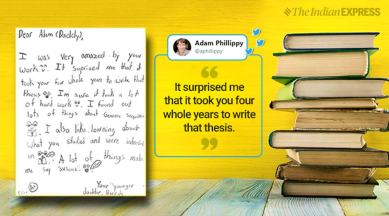 The Indian EXPRESS
Dear Adam (Daddy),
I was very amazed by your
work. It suprised me that it
took your four whole years to write that
thesis. I'm sure it took a lot
of hard work. I found out
lots of things about
I also like learning about
what you studied and were
in. A lot of things make
me say
Adam Phillippy
@aphillippy
“
It surprised me
that it took you four
whole years to write
that thesis.
”